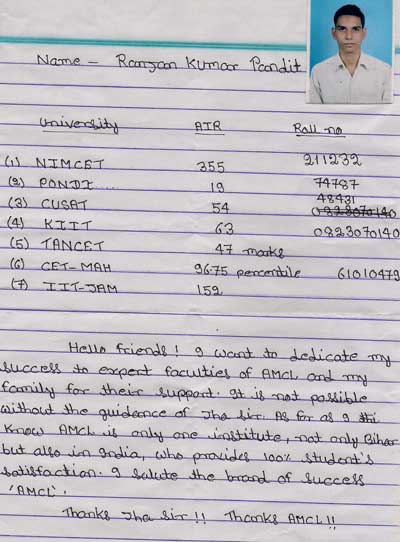 Name - Ranjan Kumar Pandit
University AIR Roll no
(1) NIMCET 355 211232
(2) PONDI..... 19 74787
(3) CUSAT 54 48431
0823070140
(4) KIIT 63 0823070140
(5) TANCET 47 marks
(6) CET-MAH 96.75 percentile 61010479
(7) IIT-JAM 152
Hello friends! I want to dedicate my
success to expert faculties of AMCL and my
family for their support. It is not possible
without the guidence of Jha sir. As far as I thi
know AMCL is only one institute, not only Bihar
but also in India, who provides 100% student's
satisfaction. I salute the brand of success
'AMCL'.
Thanks Jha Sir!! Thanks AMCL!!